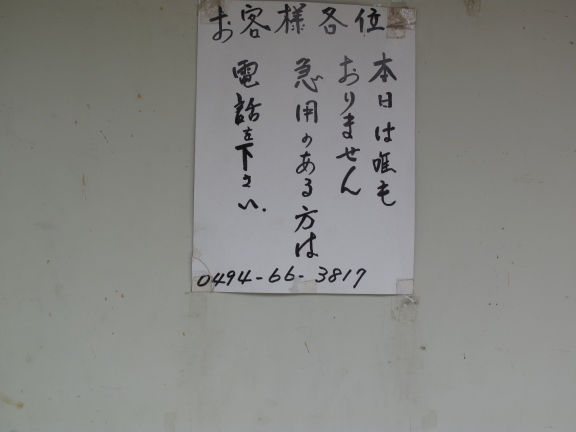 お客様各位
本日は唯も
おりません
急用のある方は
電話を下さい.
0494-66-3817